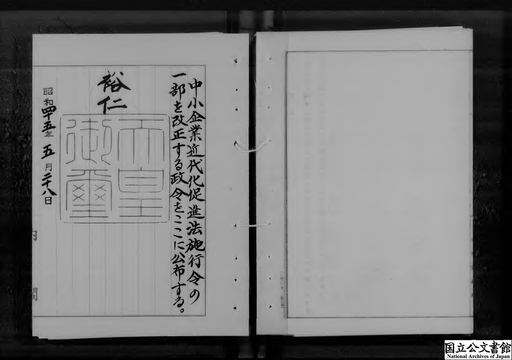 中小企業近代化促進法施行令の
一部を改正する政令をここに公布する。
裕仁
天皇
御璽
昭和四十五年五月二十八日
内閣
国立公文書館
National Archives of Japan